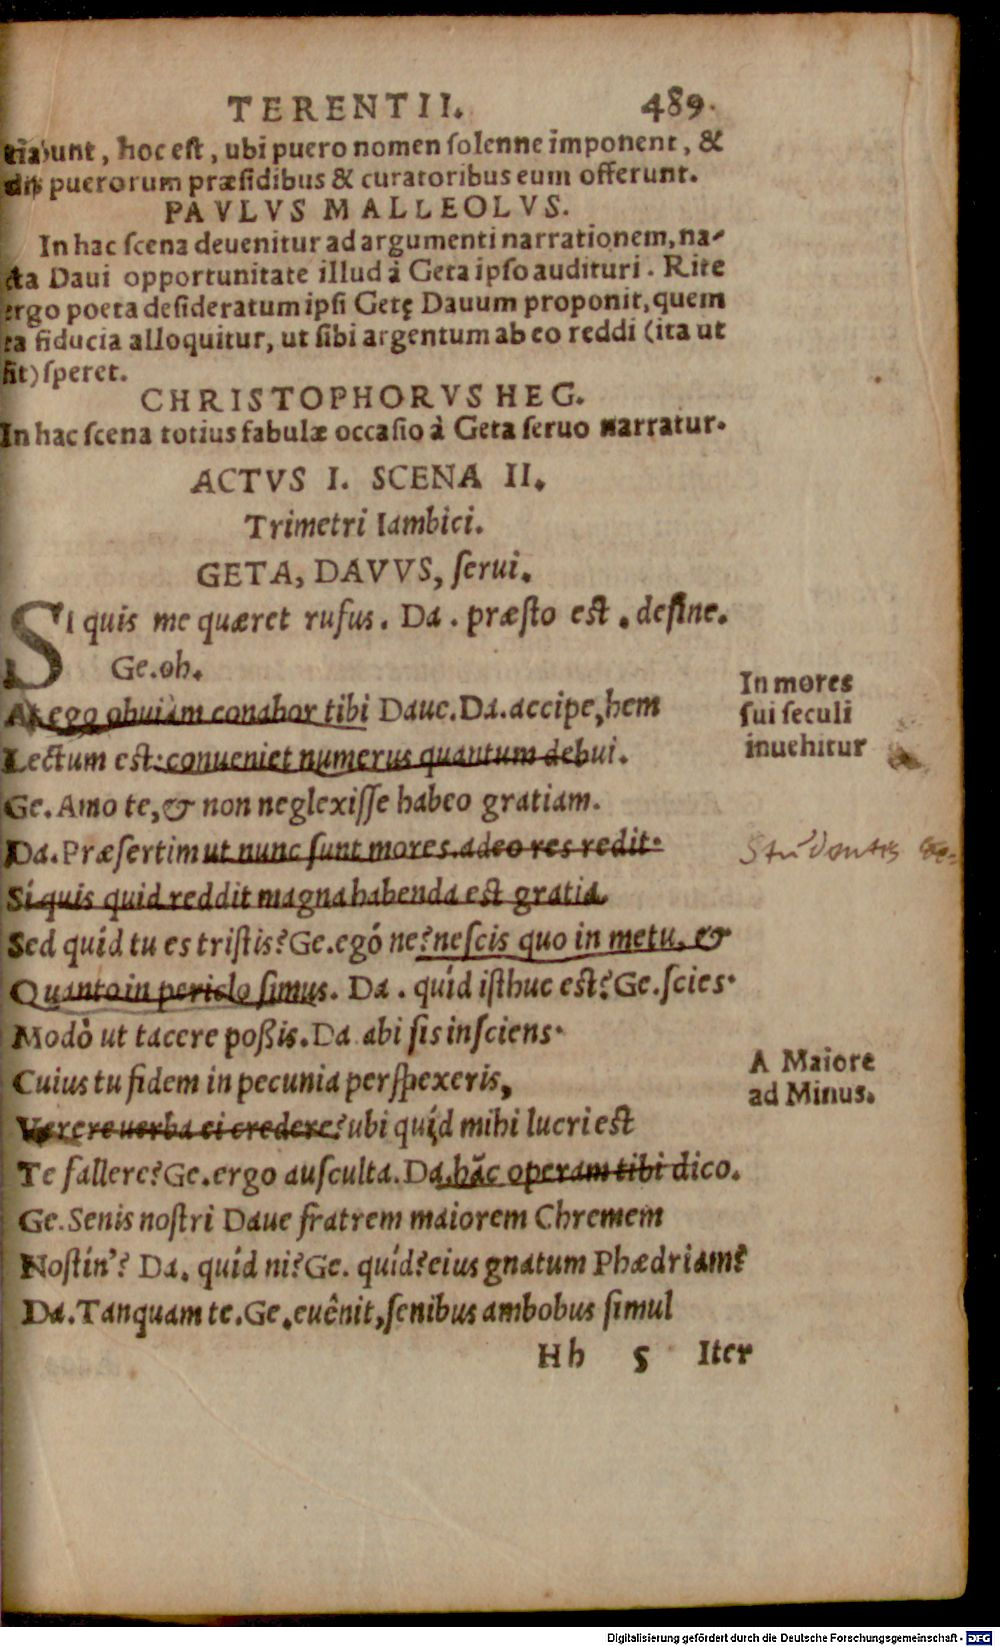 TERENTII. 489.
tiabunt, hoc est, ubi puero nomen solenne imponent, &
diis puerorum præsidibus & curatoribus eum offerunt.
PAVLVS MALLEOLVS.
In hac scena deuenitur ad argumenti narrationem, na-
cta Daui opportunitate illud à Geta ipso audituri. Rite
ergo poeta desideratum ipsi Getę Dauum proponit, quem
ea fiducia alloquitur, ut sibi argentum ab eo reddi (ita ut
fit) speret.
CHRISTOPHORVS HEG.
In hac scena totius fabulæ occasio à Geta seruo narratur.
ACTVS I. SCENA II.
Trimetri Iambici.
GETA, DAVVS, serui.
Si quis me quæret rufus. Da. præsto est. desine.
Ge. oh.
At ego obuiàm conabor tibi Daue. Da. accipe, hem
Lectum est: conueniet numerus quantum debui.
Ge. Amo te, & non neglexisse habeo gratiam.
Da. Præsertim ut nunc sunt mores. adeo res redit.
Sí quis quid reddit magna habenda est gratia.
Sed quíd tu es tristis? Ge. egó ne? nescis quo in metu, &
Quanto in periclo simus. Da. quíd isthuc est? Ge. scies.
Modò ut tacere poßis. Da abi sis insciens.
Cuius tu fidem in pecunia perspexeris,
Verere uerba ei credere? ubi quíd mihi lucri est
Te fallere? Ge. ergo ausculta. Da. hãc operam tibi dico.
Ge. Senis nostri Daue fratrem maiorem Chremem
Nostín'? Da. quíd ni? Ge. quíd? eius gnatum Phædriam?
Da. Tanquam te. Ge. euênit, senibus ambobus simul
Hh 5 Iter
In mores
sui seculi
inuehitur
A Maiore
ad Minus.
Digitalisierung gefördert durch die Deutsche Forschungsgemeinschaft - DFG